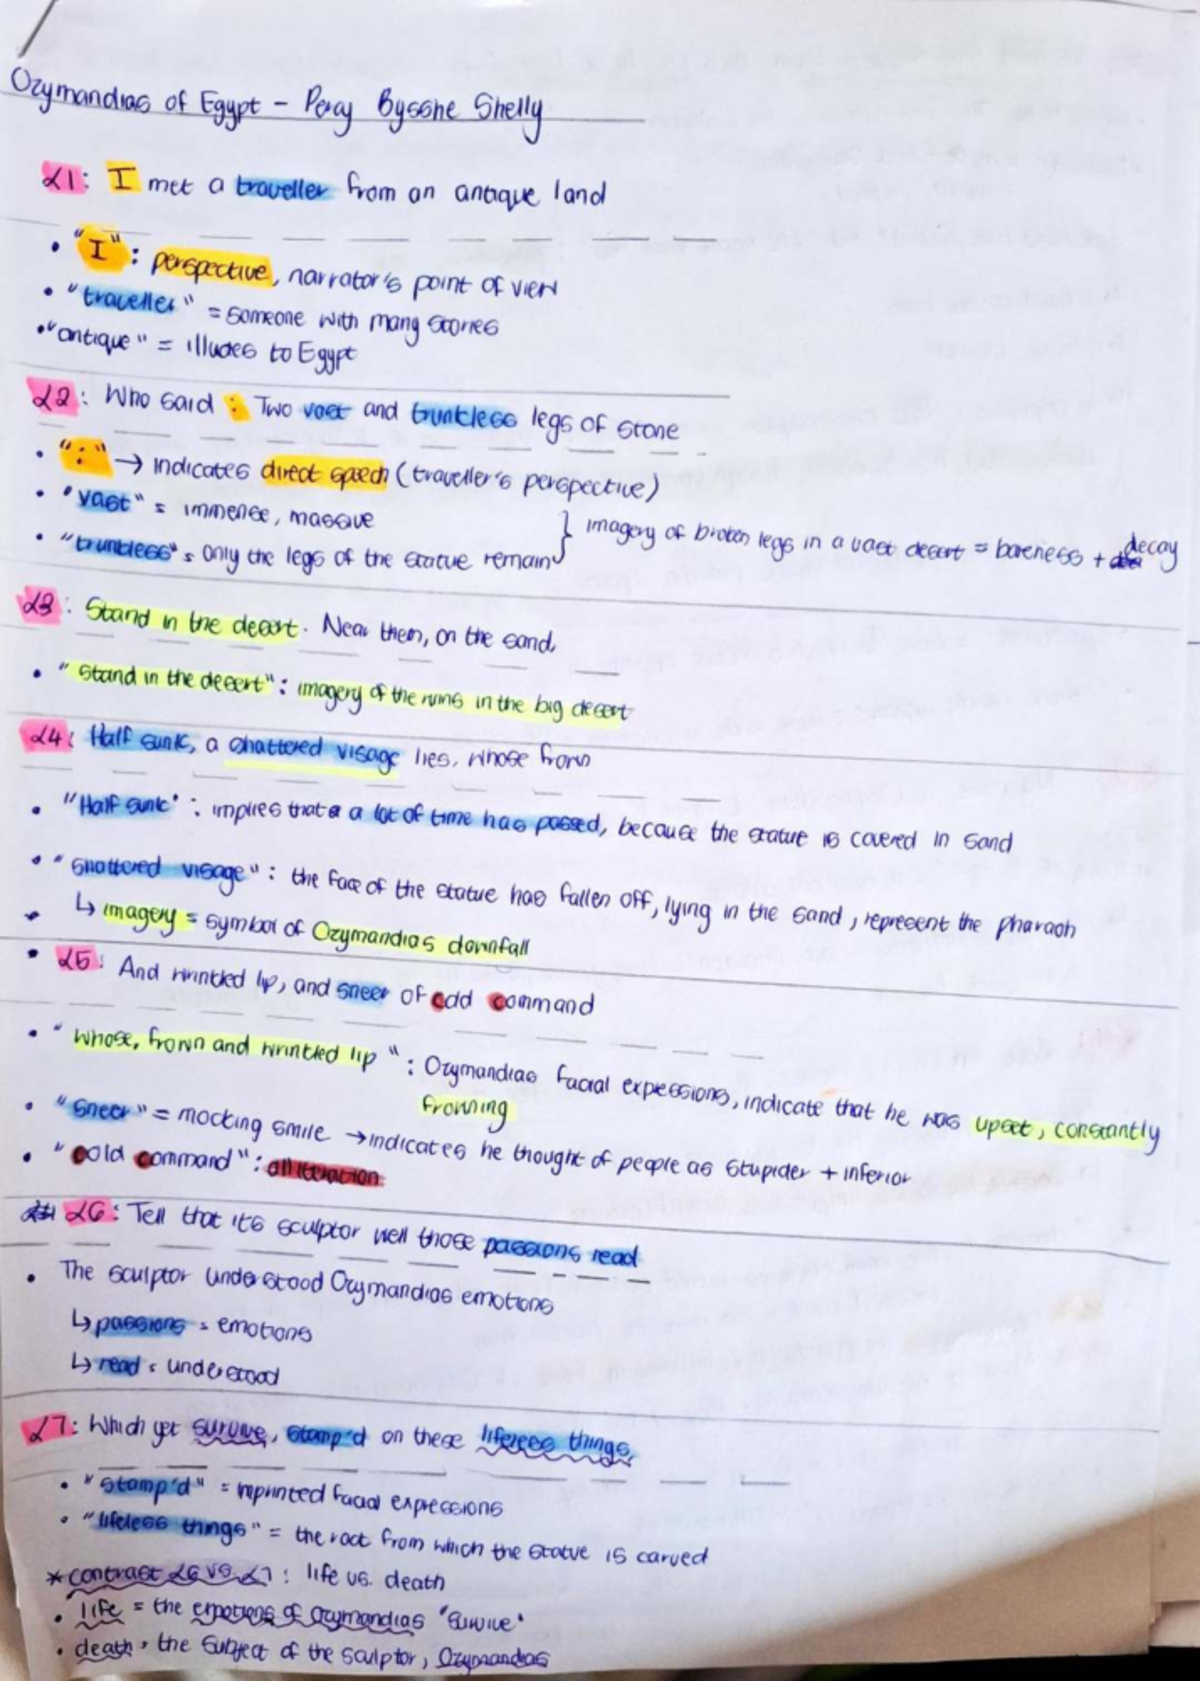 Ozymandias of Egypt - Percy Bysshe Shelly
L1: I met a traveller from an antique land
• "I": perspective, narrator's point of view
• "traveller" = someone with many stories
• "antique" = illudes to Egypt
L2: Who said : Two vast and trunkless legs of stone
• ":" → indicates direct speech (traveller's perspective)
• "vast" = immense, massive
• "trunkless" = only the legs of the statue remain } imagery of broken legs in a vast desert = bareness + decay
L3: Stand in the desert. Near them, on the sand,
• "Stand in the desert": imagery of the ruins in the big desert
L4: Half sunk, a shattered visage lies, whose frown
• "Half sunk": implies that a lot of time has passed, because the statue is covered in sand
• "shattered visage": the face of the statue has fallen off, lying in the sand, represent the pharaoh
↳ imagery = symbol of Ozymandias downfall
• L5: And wrinkled lip, and sneer of cold command
• "whose, frown and wrinkled lip": Ozymandias facial expressions, indicate that he was upset, constantly
frowning
• "sneer" = mocking smile → indicates he thought of people as stupider + inferior
• "cold command": alliteration
L6: Tell that its sculptor well those passions read
• The sculptor understood Ozymandias emotions
↳ passions = emotions
↳ read = understood
L7: Which yet survive, stamp'd on these lifeless things,
• "stamp'd" = inprinted facial expressions
• "lifeless things" = the rock from which the statue is carved
* contrast L6 vs. L7: life vs. death
• life = the emotions of Ozymandias "survive"
• death = the subject of the sculptor, Ozymandias